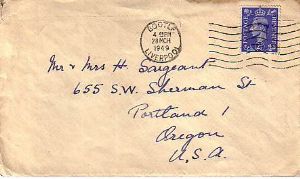 BOOTLE
4 15PM
28 MCH
1949
LIVERPOOL
Mr & Mrs H. Sargeant
655 S.W. Sherman St.
Portland 1
Oregon
U.S.A.